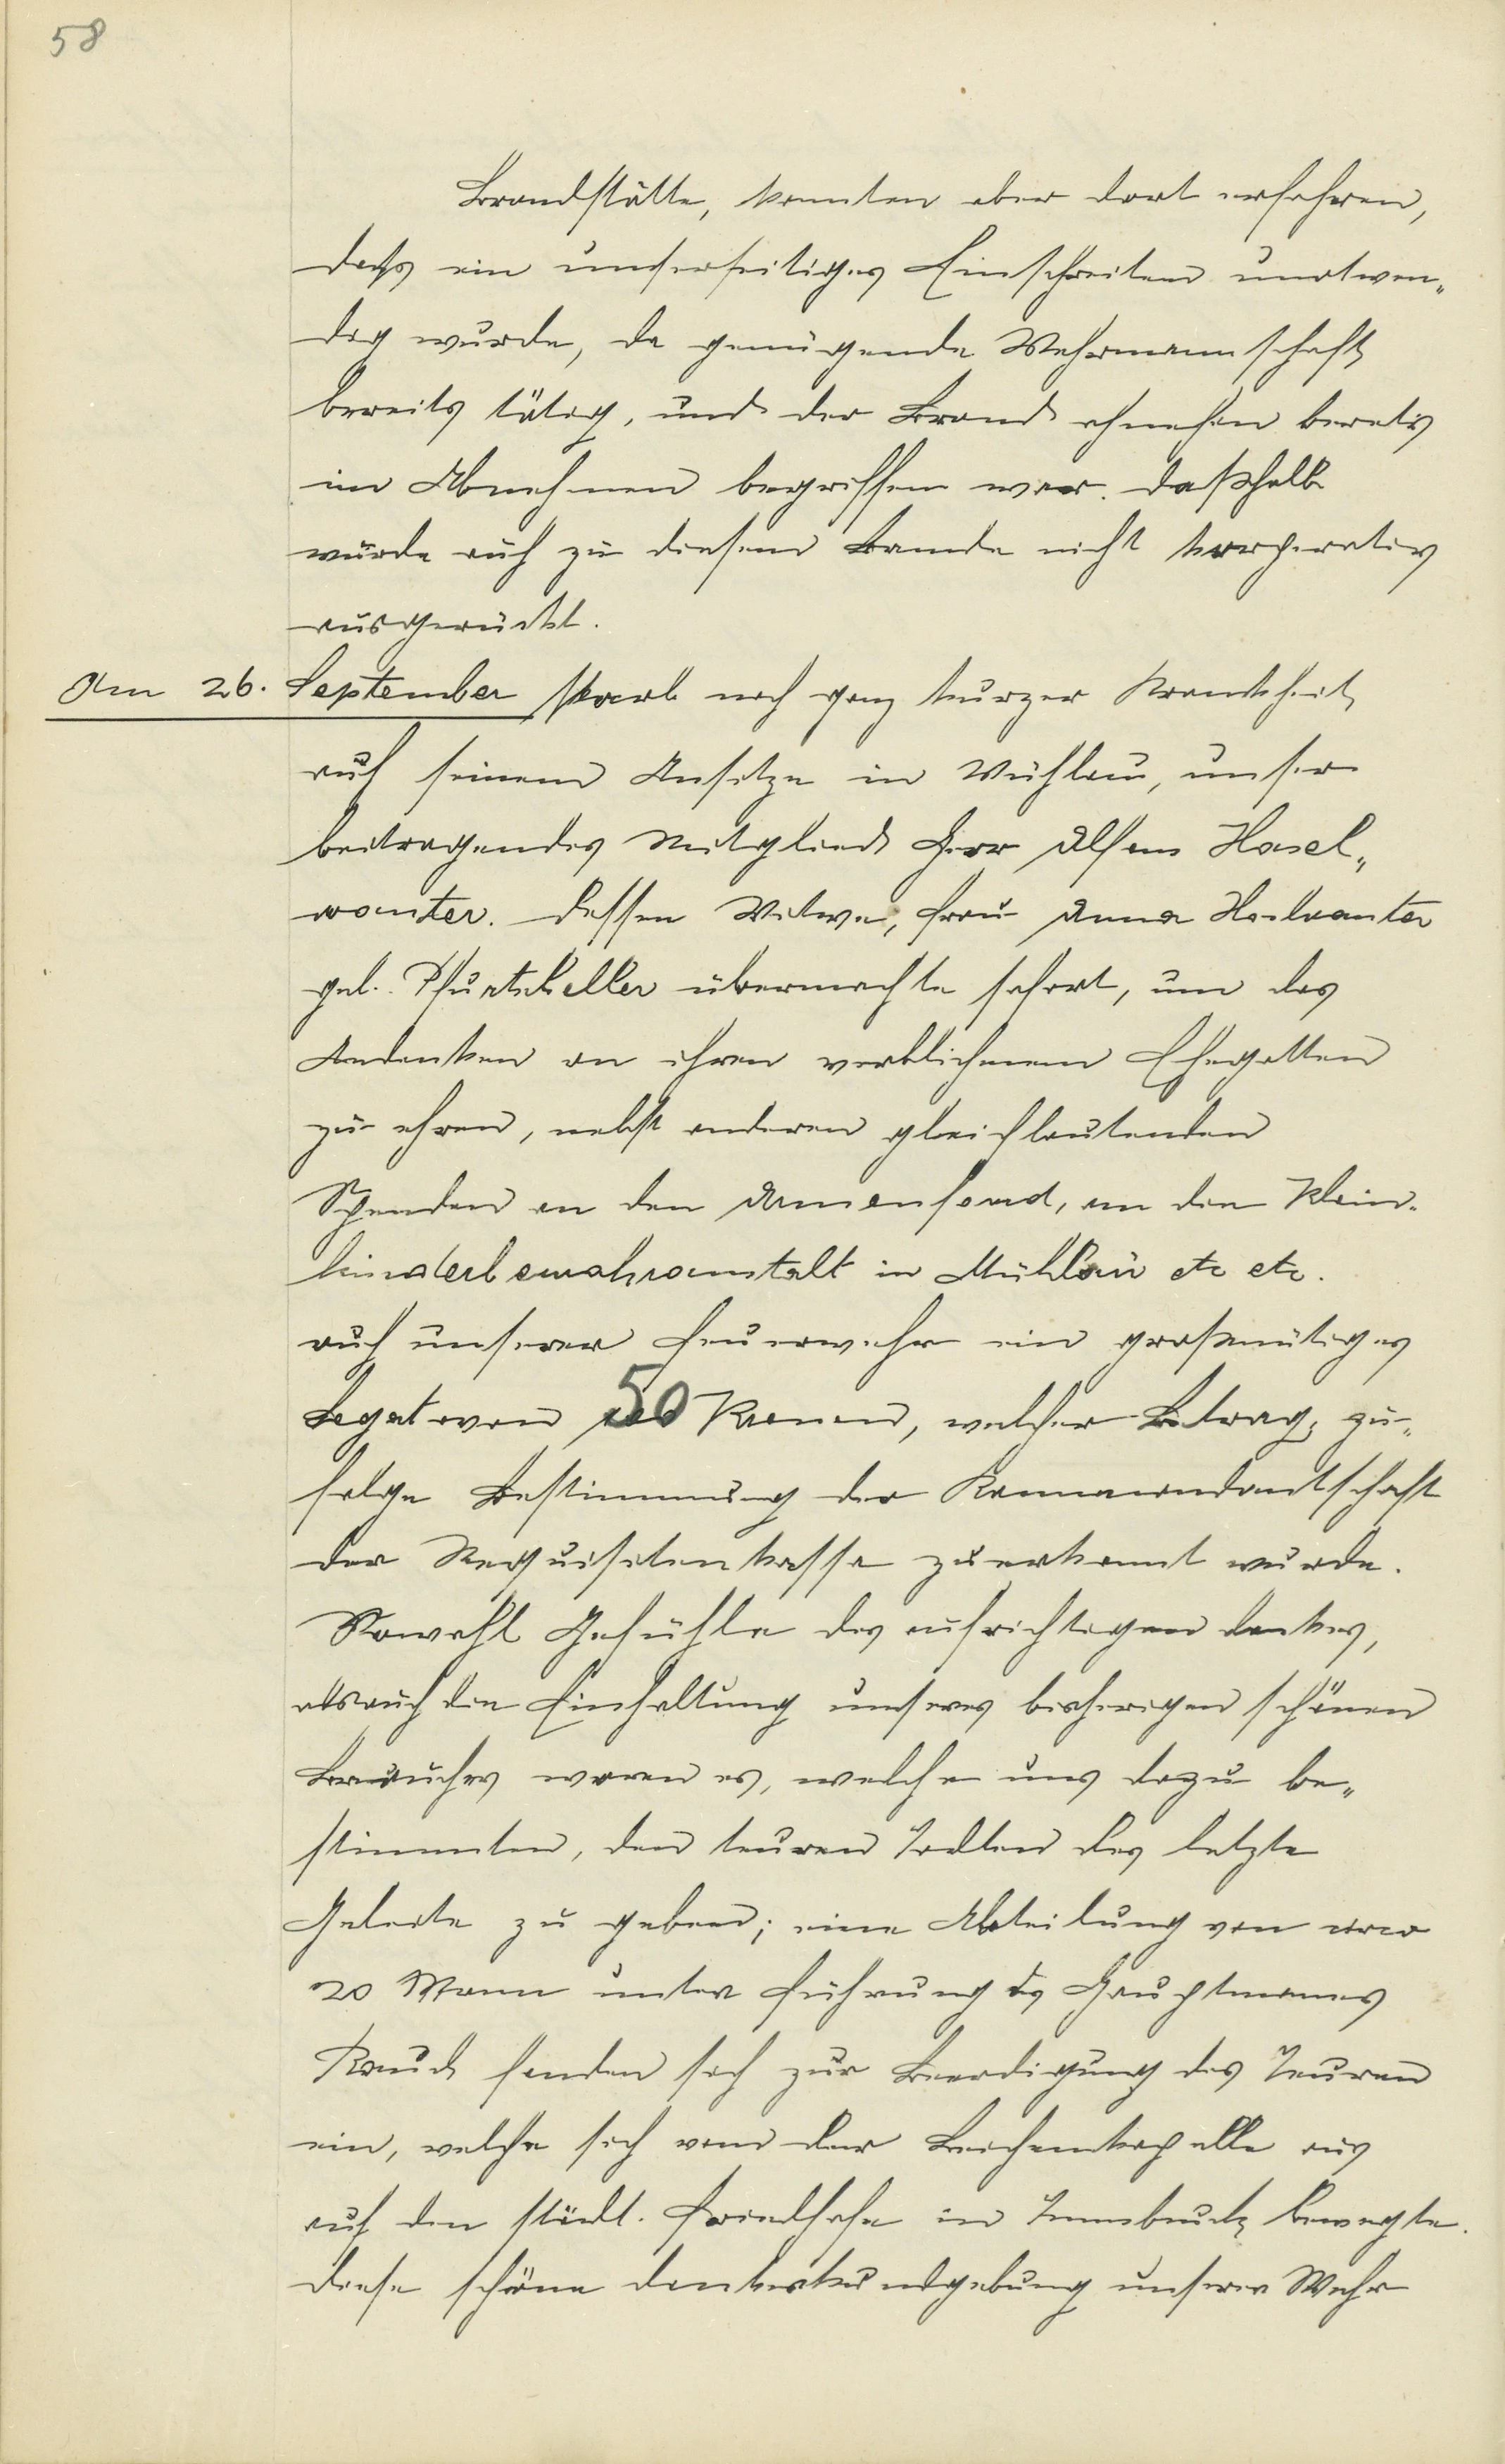 58
Brandstätte, konnten aber dort erfahren,
dass ein unserseitiges Einschreiten unotwen„
dig wurde, da genügende Wehrmannschaft
bereits tätig, und der Brand ohnehin bereits
im Abnehmen begriffen war. Daßhalb
wurde auch zu diesem Brande nicht korperativ
ausgerückt.
Am 26. September starb nach ganz kurzer Krankheit
auf seinem Ansitze in Mühlau, unser
beitragendes Mitglied Herr Alfons Hasel„
wanter. Dessen Witwe, Frau Anna Haslwanter
geb. Pfurtscheller übermachte sofort, um das
Andenken an ihren verblichenen Ehegatten
zu ehren, nebst anderen gleichlautenden
Spenden an den Armenfond, an die Klein-
kinderbewahranstalt in Mühlau etc etc.
auch unserer Feuerwehr ein großmütiges
Legat von 50 Kronen, welcher Betrag, zu„
folge Bestimmung der Kommandantschaft
der Requisitenkasse zuerkannt wurde.
Sowohl Gefühle des aufrichtigen Dankes,
als auch die Einhaltung unseres bisherigen schönen
Brauches waren es, welche uns dazu be„
stimmten, den teuren Todten das letzte
Geleite zu geben; eine Abteilung von circa
20 Mann unter Führung des Hauptmannes
Rauch fanden sich zur Beerdigung des Teuren
ein, welche sich von der Leichenkapelle aus
auf den städt. Friedhofe in Innsbruck bewegte.
Diese schöne Dankeskundgebung unserer Wehr